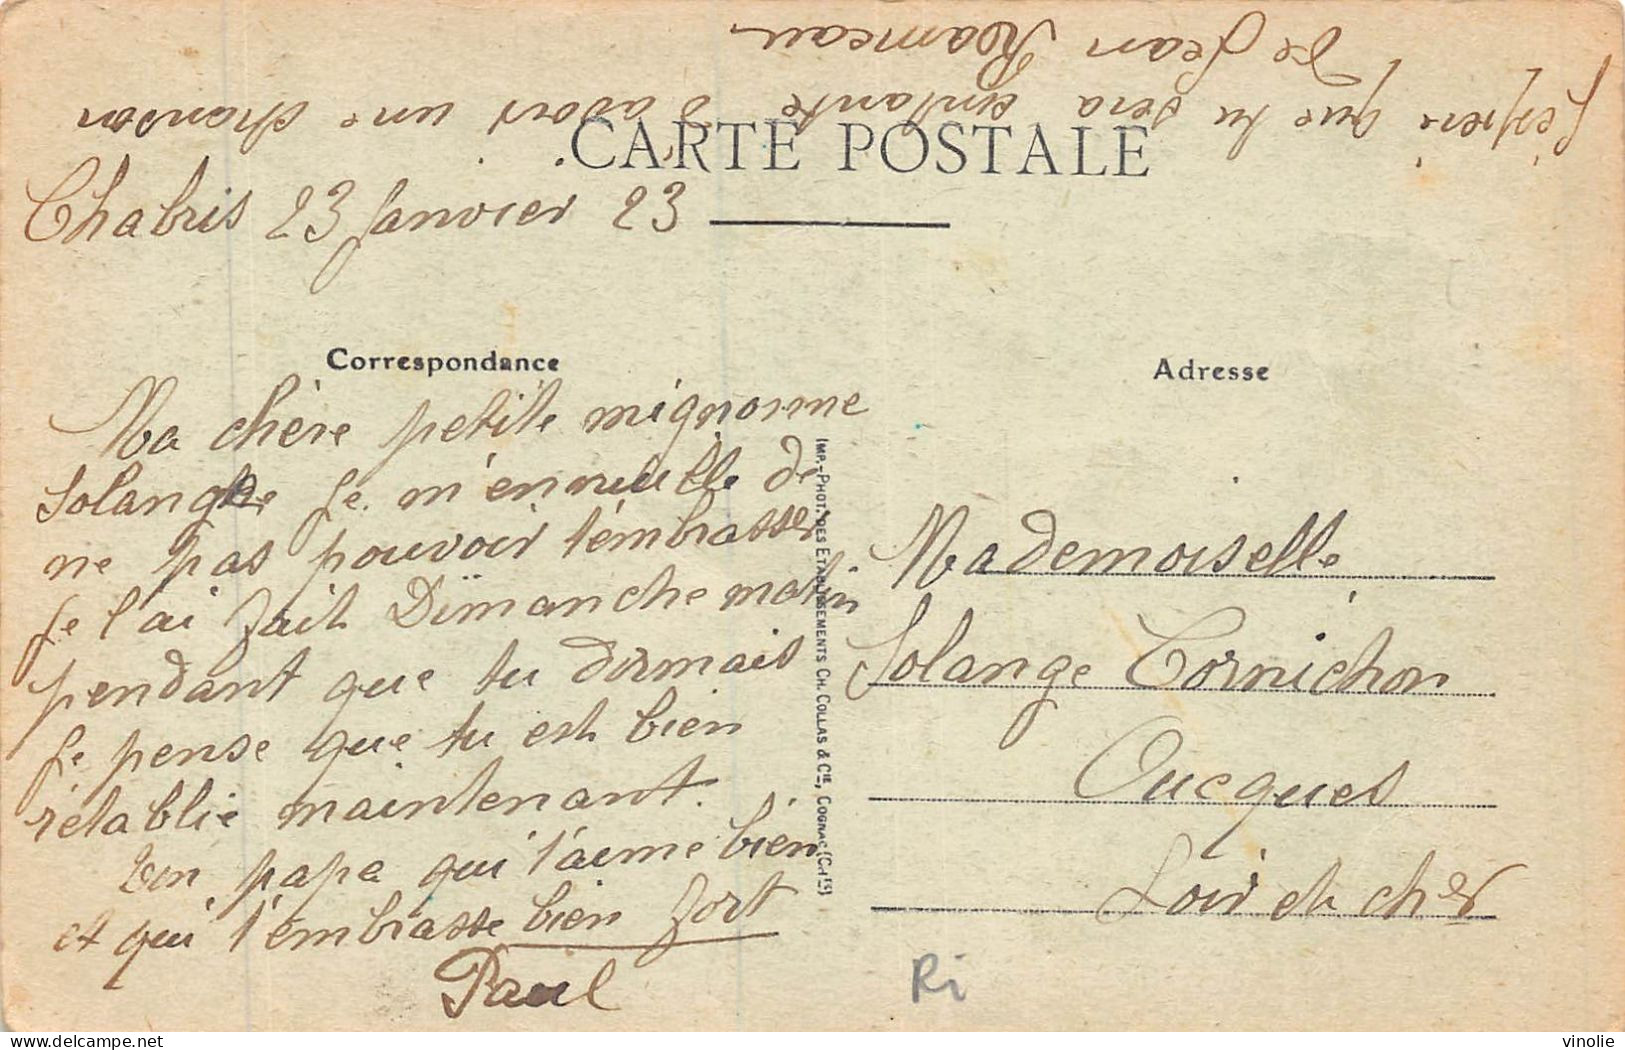 J'espère que tu sera contante d'avoir une chanson
De Jean Rameau
CARTE POSTALE
Chabris 23 Janvier 23
Correspondance
Ma chère petite mignonne
Solange Je m'ennuille de
ne pas pouvoir t'émbrasser
Je l'ai fait Dimanche matin
pendant que tu dormais
Je pense que tu est bien
rétablie maintenant.
Ton papa qui t'aime bien
et qui t'embrasse bien fort
Paul
IMP.-PHOT. DES ETABLISSEMENTS CH. COLLAS & CIE, COGNAC (CHTE)
Adresse
Mademoiselle
Solange Cornichon
Oucques
Loir et cher
Ri
delcampe.net
vinolie